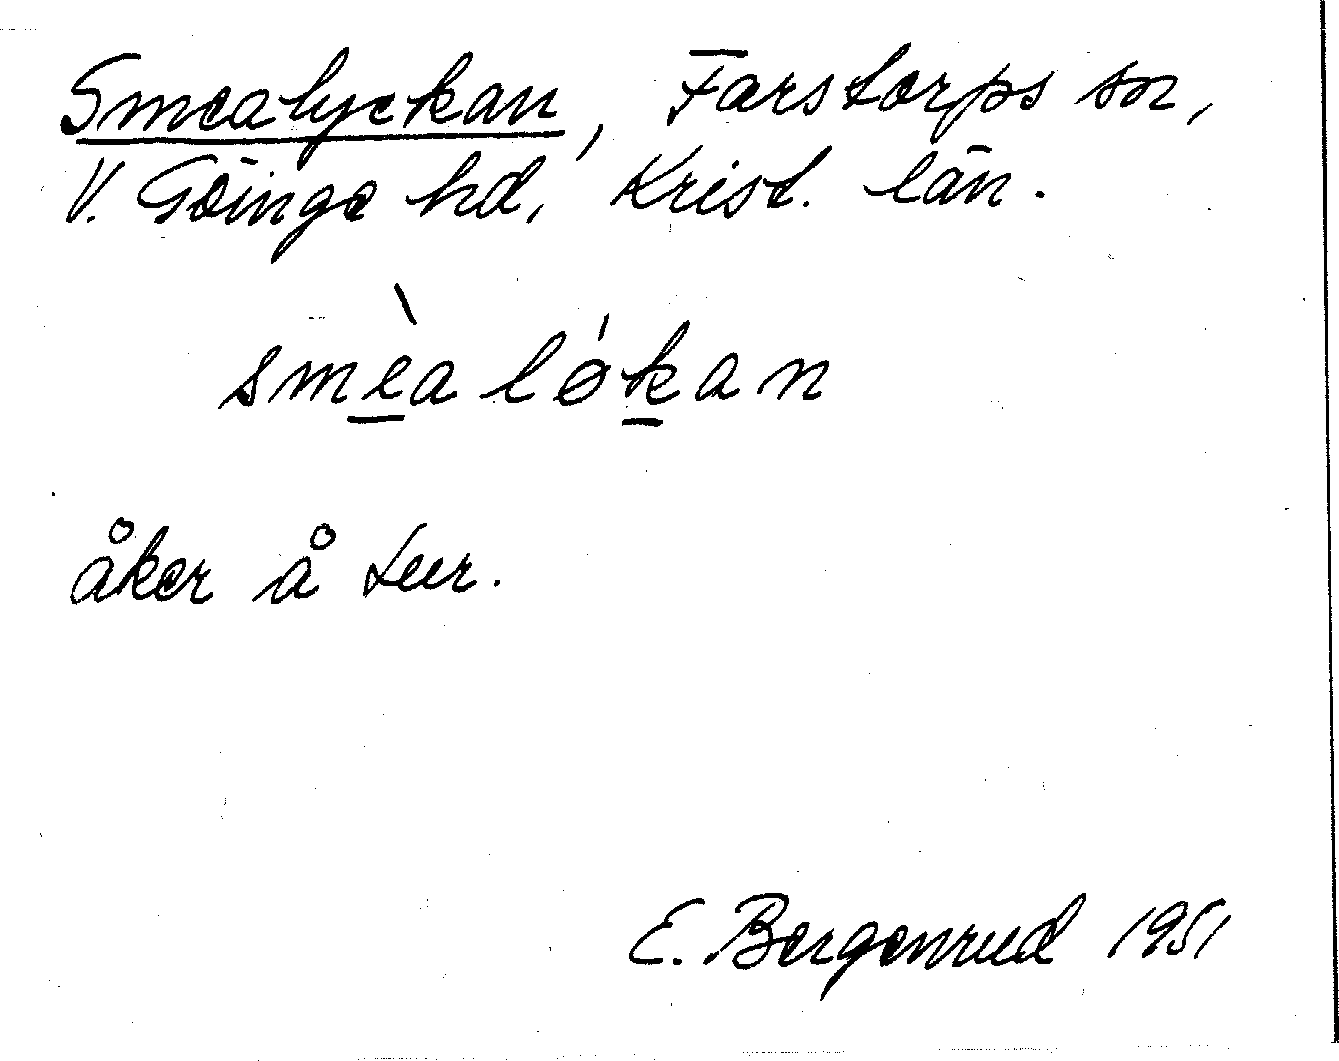 Smealyckan, Farstorps sn,
V. Göinge hd, Krist. län.
smèalókan
åker å Lur.
E. Bergenrud 1951